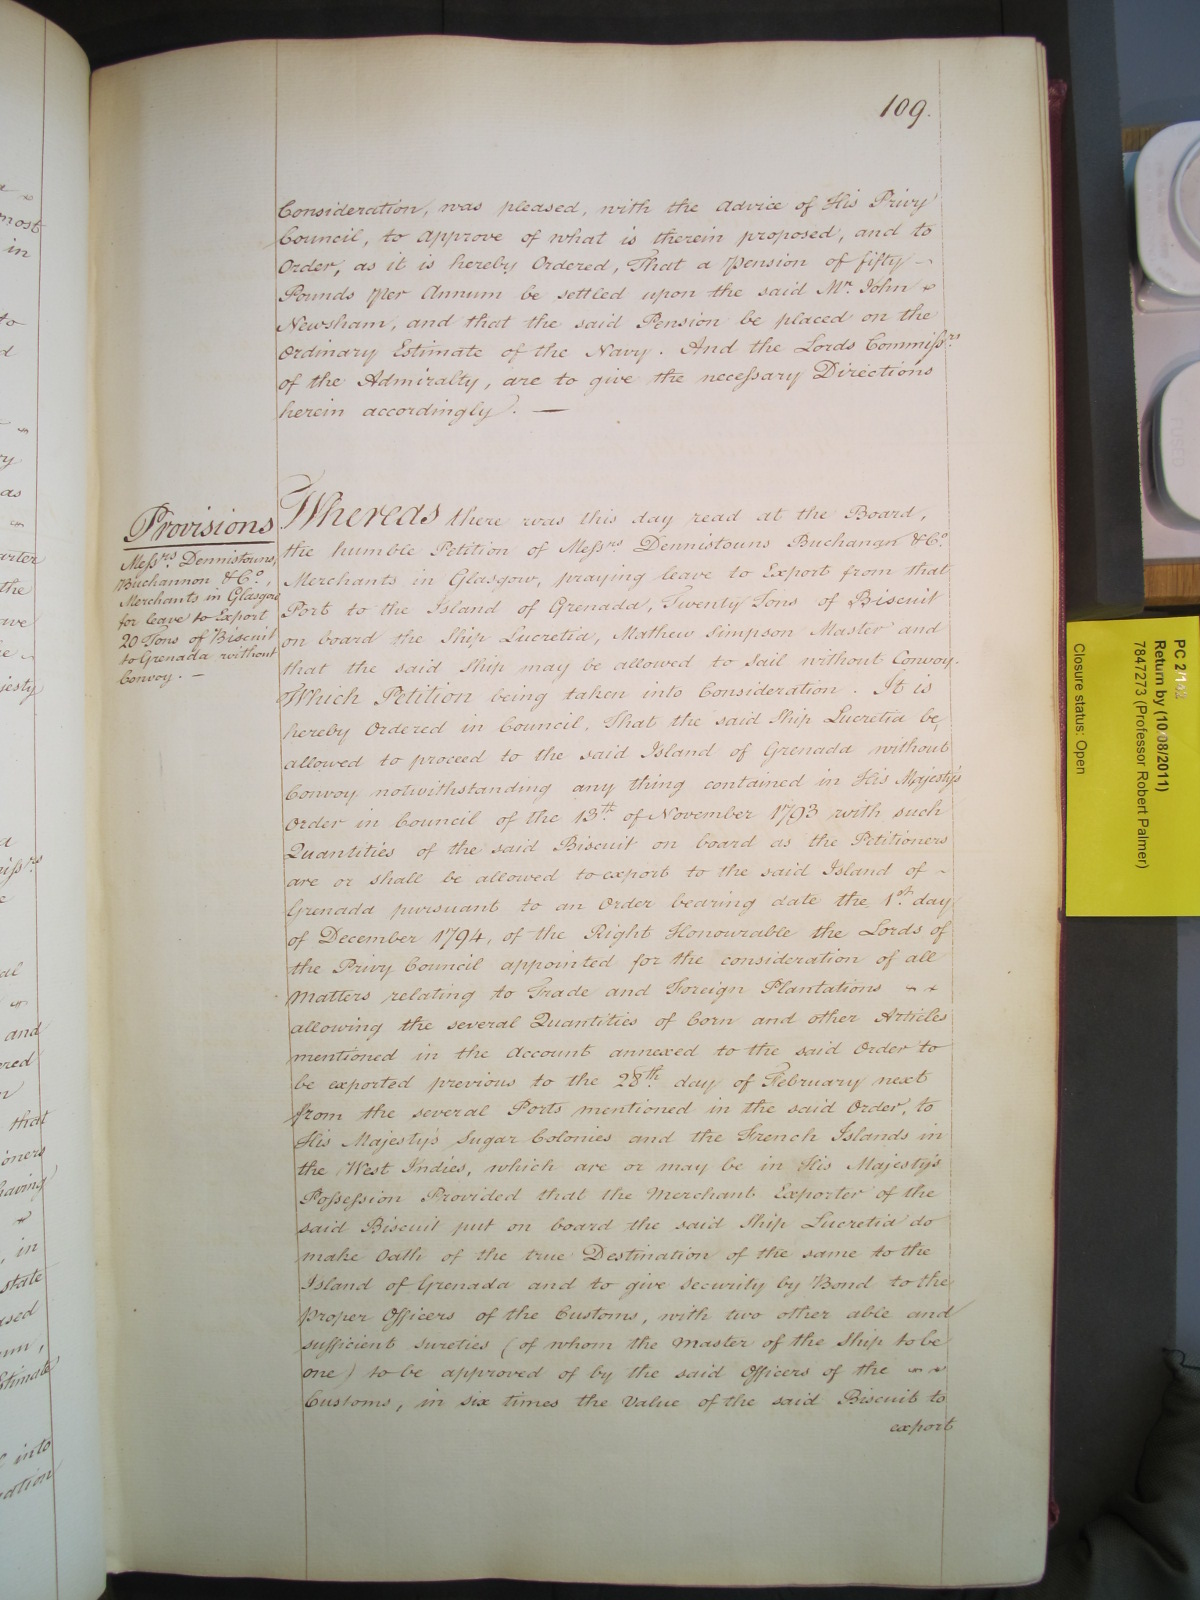 109.
Consideration, was pleased, with the Advice of His Privy
Council, to Approve of what is therein proposed, and to
Order, as it is hereby Ordered, That a Pension of fifty
Pounds Per Annum be settled upon the said Mr. John
Newsham, and that the said Pension be placed on the
Ordinary Estimate of the Navy. And the Lords Commissrs
of the Admiralty, are to give the necessary Directions
herein accordingly. —
Provisions
Messrs Dennistouns,
Buchannon & Co.,
Merchants in Glasgow
for leave to Export
20 Tons of Biscuit
to Grenada without
Convoy. —
Whereas there was this day read at the Board,
the humble Petition of Messrs Dennistouns Buchanan & Co.
Merchants in Glasgow, praying leave to Export from that
Port to the Island of Grenada, Twenty Tons of Biscuit
on board the Ship Lucretia, Mathew Simpson Master and
that the said Ship may be allowed to sail without Convoy.
Which Petition being taken into Consideration. It is
hereby Ordered in Council, That the said Ship Lucretia be
allowed to proceed to the said Island of Grenada without
Convoy notwithstanding any thing contained in His Majesty's
Order in Council of the 13th of November 1793 with such
Quantities of the said Biscuit on board as the Petitioners
are or shall be allowed to export to the said Island of
Grenada pursuant to an Order bearing date the 1st day
of December 1794, of the Right Honourable the Lords of
the Privy Council appointed for the consideration of all
Matters relating to Trade and Foreign Plantations
allowing the several Quantities of Corn and other Articles
mentioned in the Account annexed to the said Order to
be exported previous to the 28th day of February next
from the several Ports mentioned in the said Order, to
His Majesty's Sugar Colonies and the French Islands in
the West Indies, which are or may be in His Majesty's
Possession Provided that the Merchant Exporter of the
said Biscuit put on board the said Ship Lucretia do
make Oath of the true Destination of the same to the
Island of Grenada and to give security by Bond to the
proper Officers of the Customs, with two other able and
sufficient sureties (of whom the Master of the Ship to be
one) to be approved of by the said Officers of the
Customs, in six times the Value of the said Biscuit to
export
PC 2/142
Return by (10/08/2011)
7847273 (Professor Robert Palmer)
Closure status: Open
most
in
to
as
arter
the
ave
jesty
and
ered
that
ioners
having
in
state
used
Estimate
into
ation